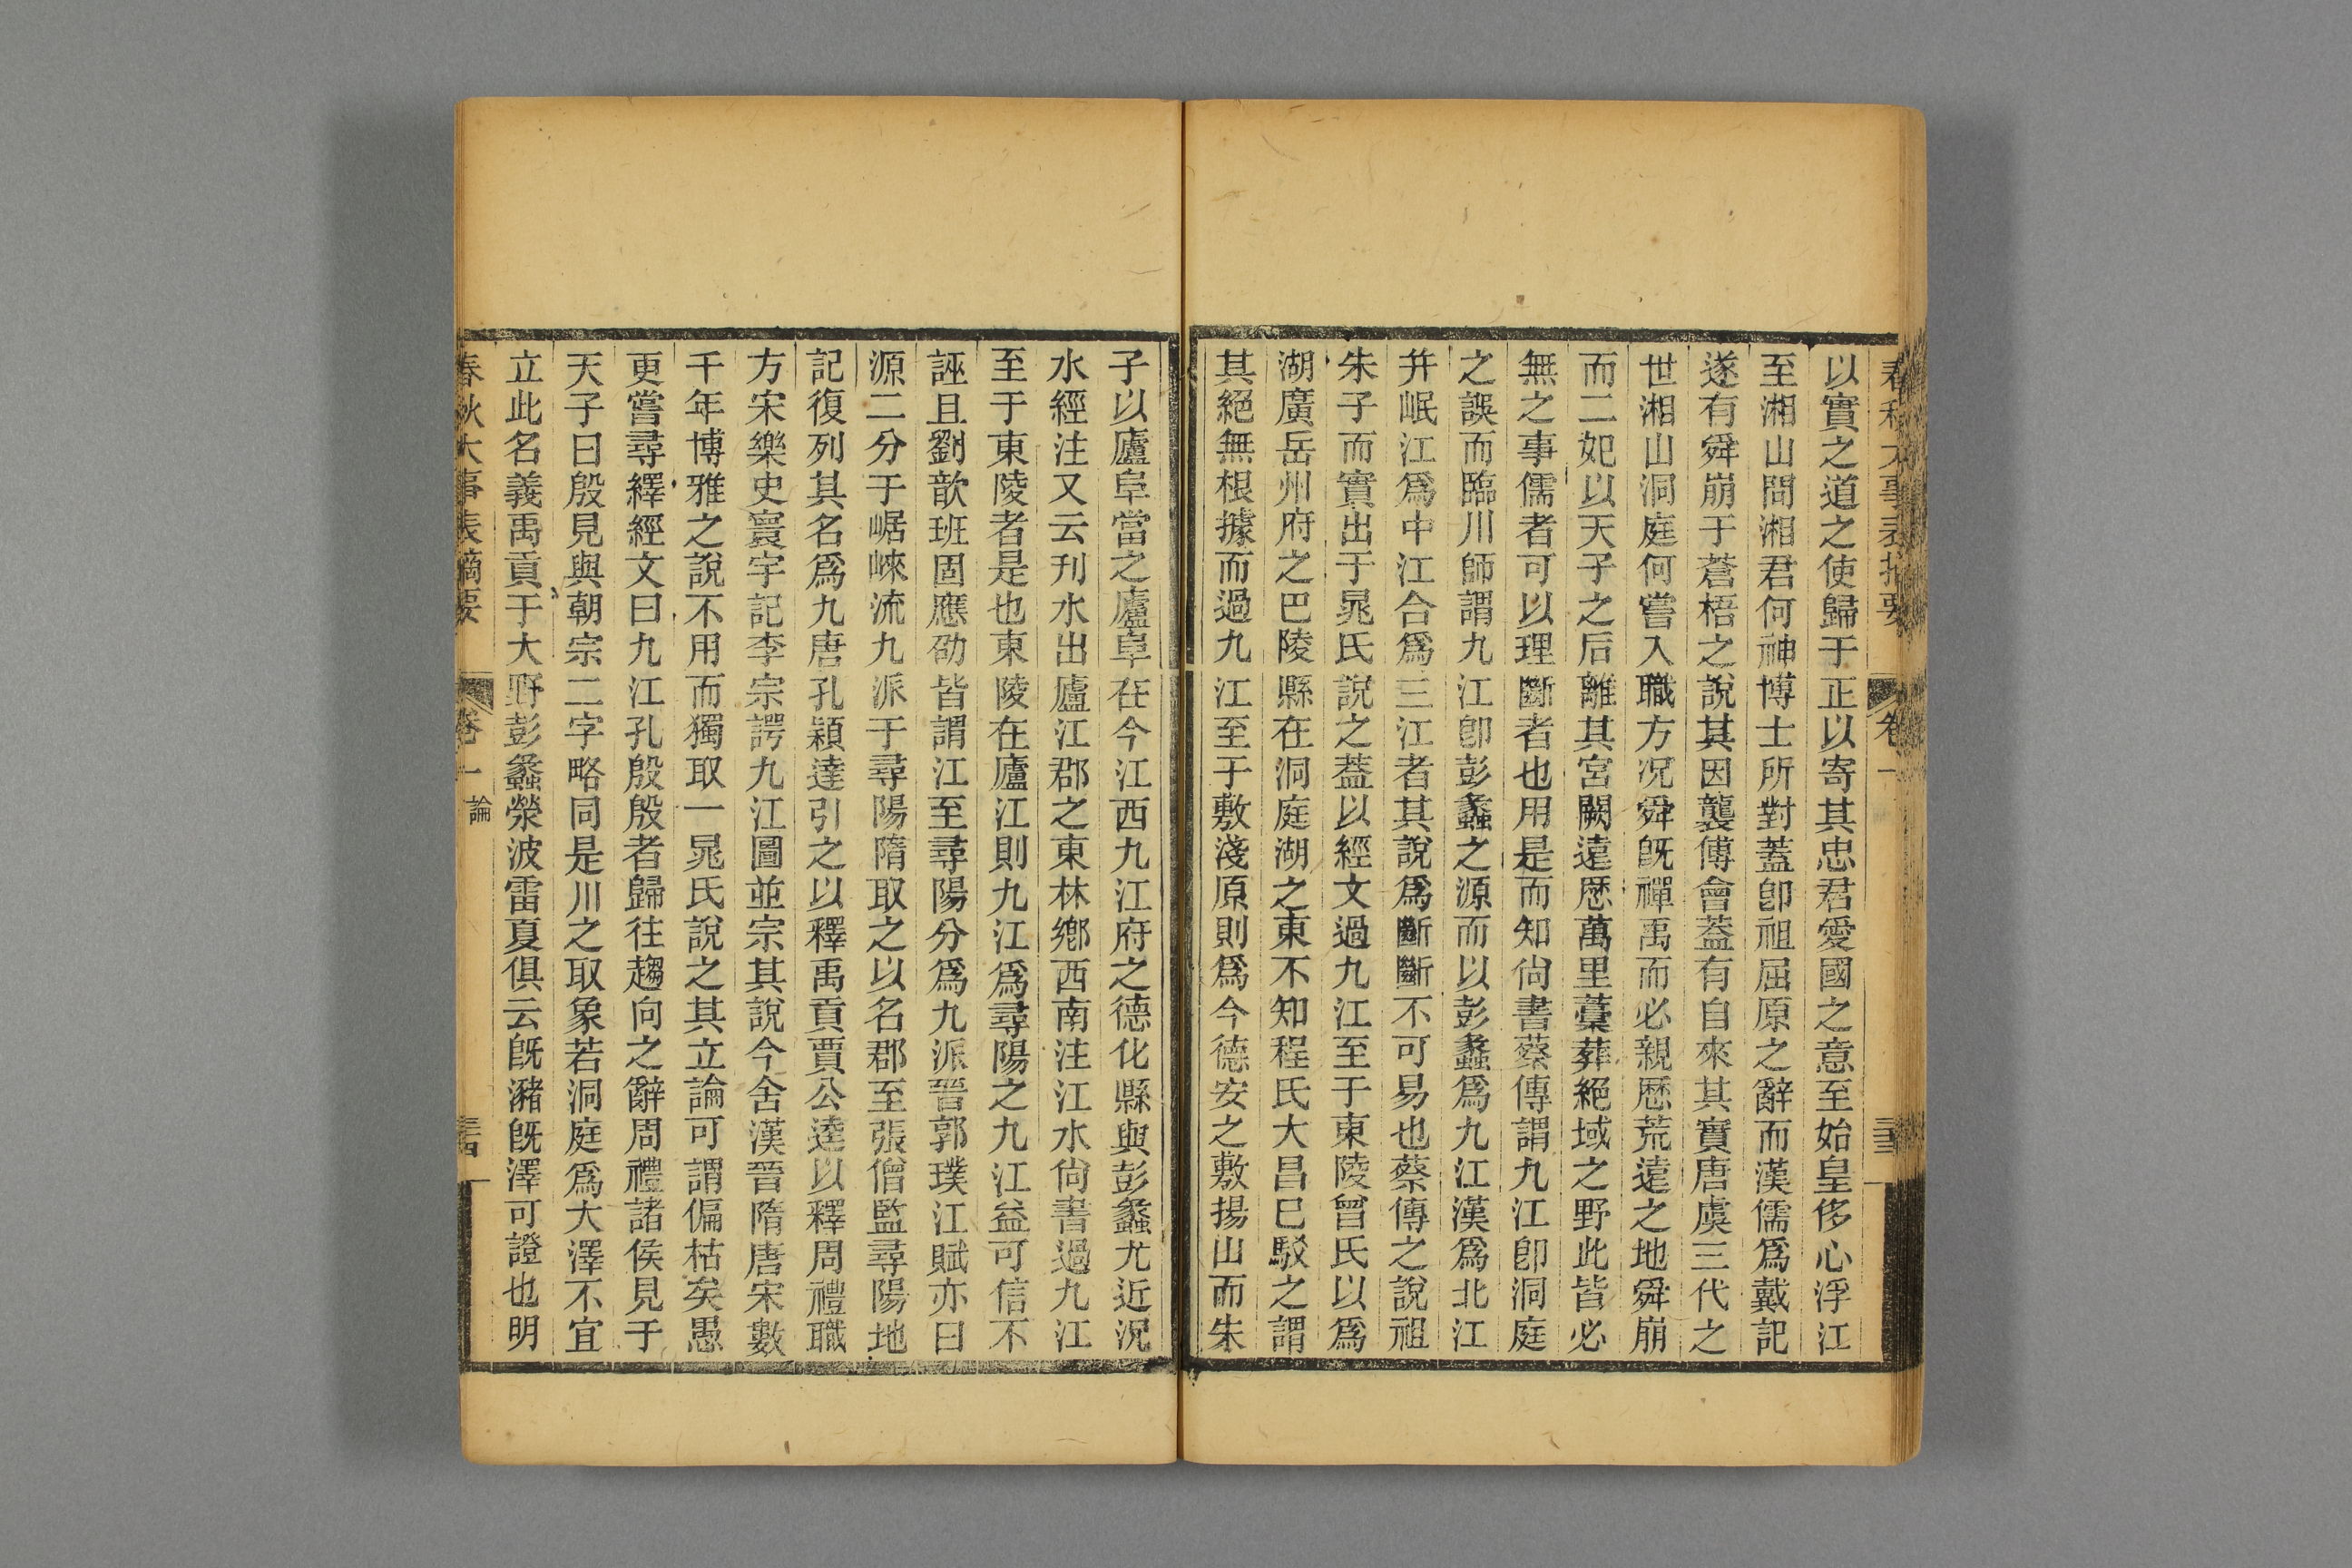 春秋大事表摘要 卷一 三十三
以實之道之使歸于正以寄其忠君愛國之意至始皇侈心浮江
至湘山問湘君何神博士所對蓋卽祖屈原之辭而漢儒爲戴記
遂有舜崩于蒼梧之說其因襲傅會蓋有自來其實唐虞三代之
世湘山洞庭何嘗入職方况舜旣禪禹而必親歷荒遠之地舜崩
而二妃以天子之后離其宮闕遠歷萬里藁葬絕域之野此皆必
無之事儒者可以理斷者也用是而知尙書蔡傳謂九江卽洞庭
之誤而臨川師謂九江卽彭蠡之源而以彭蠡爲九江漢爲北江
并岷江爲中江合爲三江者其說爲斷斷不可易也蔡傳之說祖
朱子而實出于晁氏說之蓋以經文過九江至于東陵曾氏以爲
湖廣岳州府之巴陵縣在洞庭湖之東不知程氏大昌已駁之謂
其絕無根據而過九江至于敷淺原則爲今德安之敷揚山而朱
子以廬阜當之廬阜在今江西九江府之德化縣與彭蠡尤近況
水經注又云刋水出廬江郡之東林鄉西南注江水尙書過九江
至于東陵者是也東陵在廬江則九江爲尋陽之九江益可信不
誣且劉歆班固應劭皆謂江至尋陽分爲九派晉郭璞江賦亦曰
源二分于崌崍流九派于尋陽隋取之以名郡至張僧監尋陽地
記復列其名爲九唐孔穎達引之以釋禹貢賈公逵以釋周禮職
方宋樂史寰宇記李宗諤九江圖並宗其說今舍漢晉隋唐宋數
千年博雅之說不用而獨取一晁氏說之其立論可謂偏枯矣愚
更嘗尋繹經文曰九江孔殷殷者歸往趨向之辭周禮諸侯見于
天子曰殷見與朝宗二字略同是川之取象若洞庭爲大澤不宜
立此名義禹貢于大野彭蠡滎波雷夏俱云旣瀦旣澤可證也明
春秋大事表摘要 卷一 論 三十四